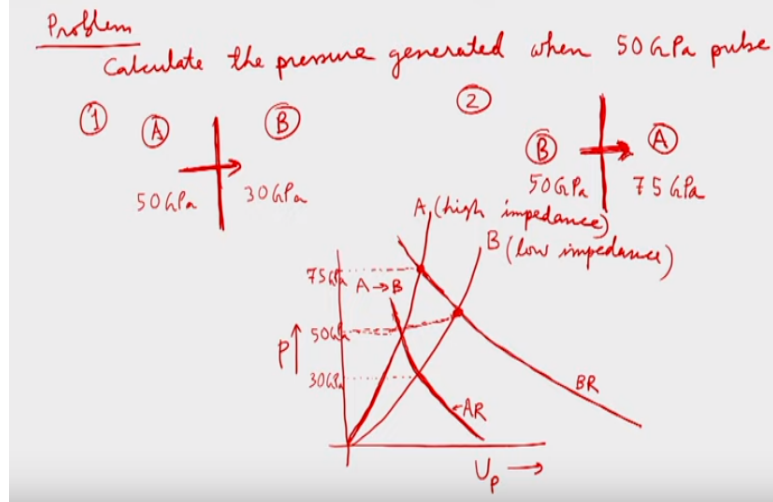 Problem
Calculate the pressure generated when 50 GPa pulse
① Ⓐ Ⓑ ② Ⓑ Ⓐ
50 GPa 30 GPa 50 GPa 75 GPa
A (high impedance)
B (low impedance)
75 GPa
A→B
50 GPa
P↑
30 GPa
BR
AR
Up →